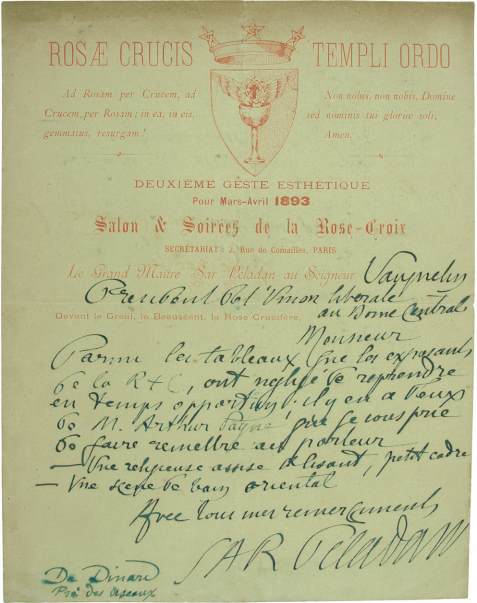 ROSÆ CRUCIS TEMPLI ORDO
Ad Rosam per Crucem, ad
Crucem, per Rosam; in ea, in eis,
gemmatus, resurgam!
Non nobis, non nobis, Domine
sed nominis tui gloriæ soli,
Amen.
DEUXIÈME GESTE ESTHÉTIQUE
Pour Mars-Avril 1893
Salon & Soirées de la Rose-Croix
SECRÉTARIAT: 2, Rue de Comailles, PARIS
Le Grand Maître Sar Peladan au Seigneur Vauquelin
President de l'Union liberale
au Dome Central
Devant le Graal, le Beauséant, la Rose Crucifère,
Monsieur
Parmi les tableaux que les exposants
de la R+C, ont négligé de reprendre
en temps opportun, il y en a deux
de M. Arthur que je vous prie
de faire remettre au porteur
— Une religieuse assise & lisant, petit cadre
— Une scene de bain oriental
Avec tous mes remerciements
SAR Peladan
De Dinard
Pré des oiseaux